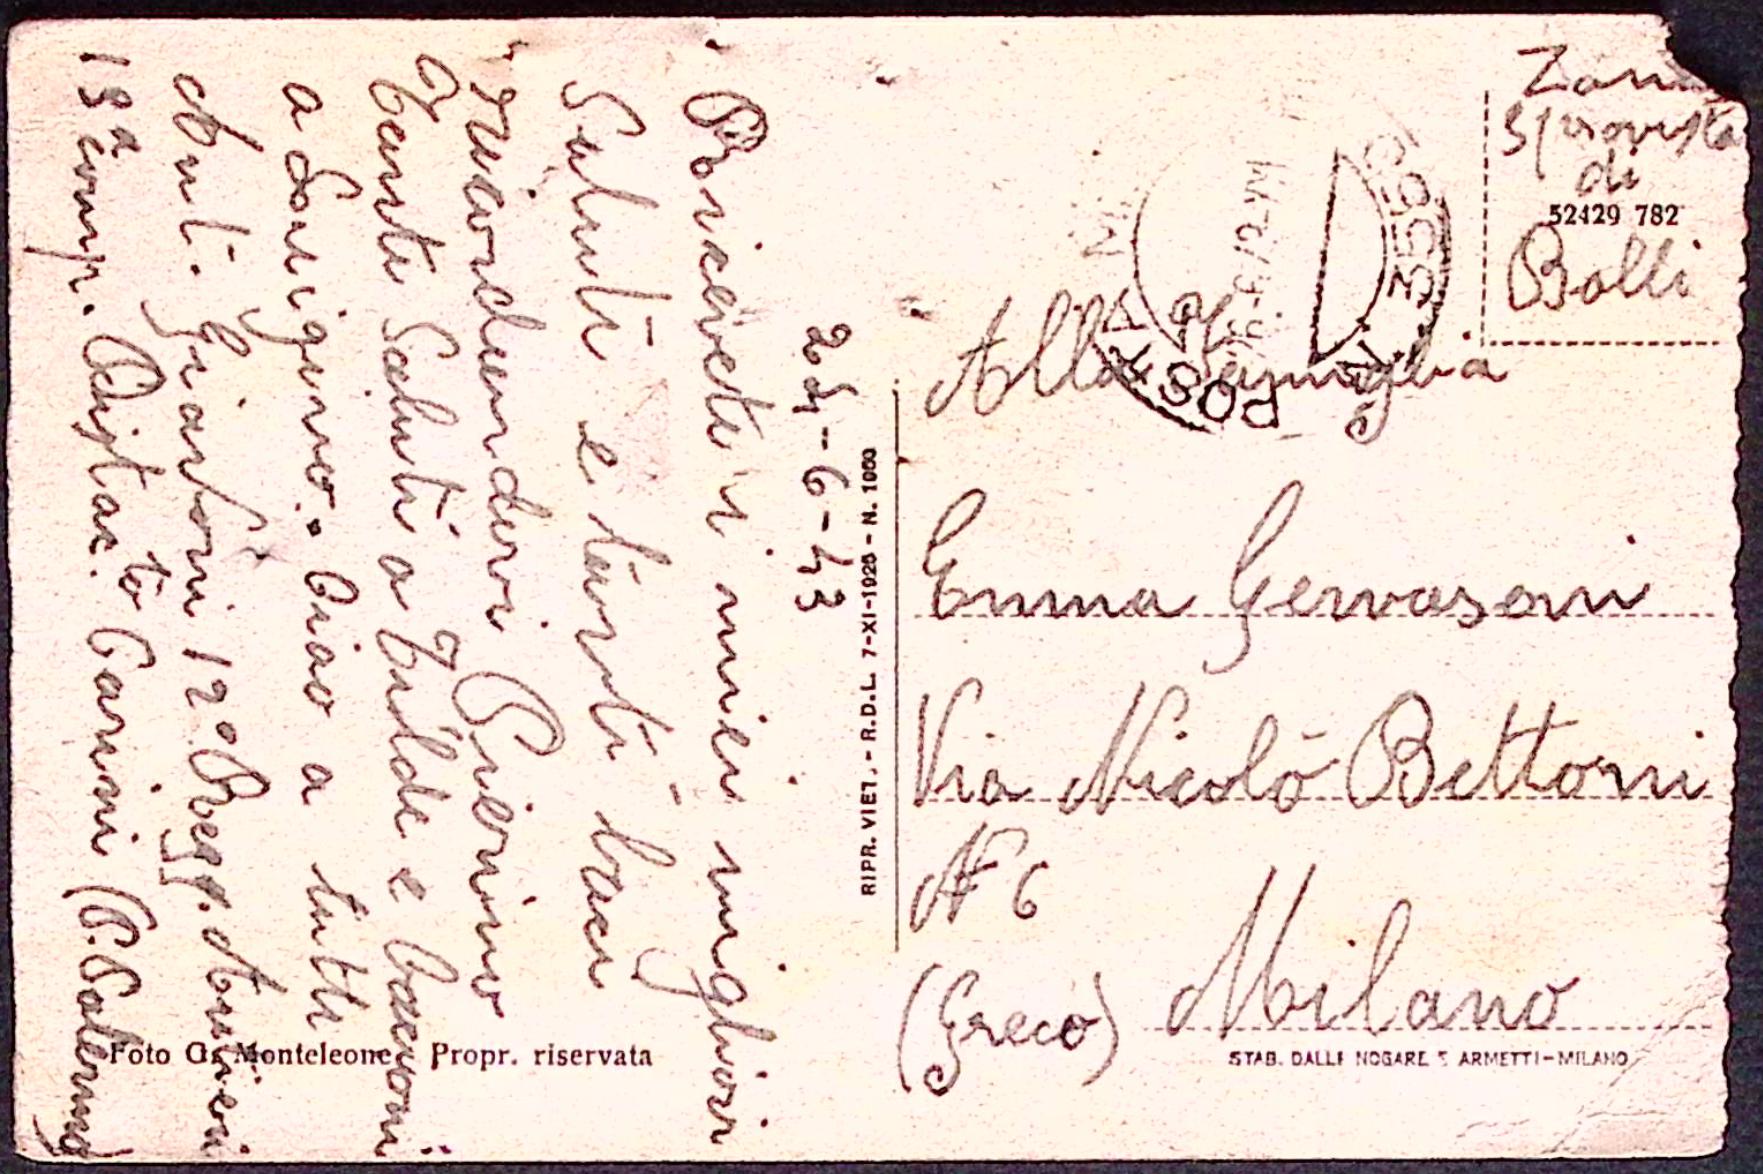 24-6-43
Ricevete i miei migliori
Saluti e tanti baci
ricordandovi Pierino
Tanti Saluti a Tilde e bacioni
a Luigino. Ciao a tutti
Art. 12° Regg. Artiglieri
13ª comp. Distac.to Carini (P. Palermo
Foto G. Monteleone Propr. riservata
RIPR. VIET. - R.D.L. 7-XI-1925 - N. 1000
Zona
Sprovista
di
52429 782
Bolli
POSTA
Alla Famiglia
Emma Gervasoni
Via Nicolò Bettoni
N 6
Milano
(Greco)
STAB. DALLE NOGARE E ARMETTI-MILANO